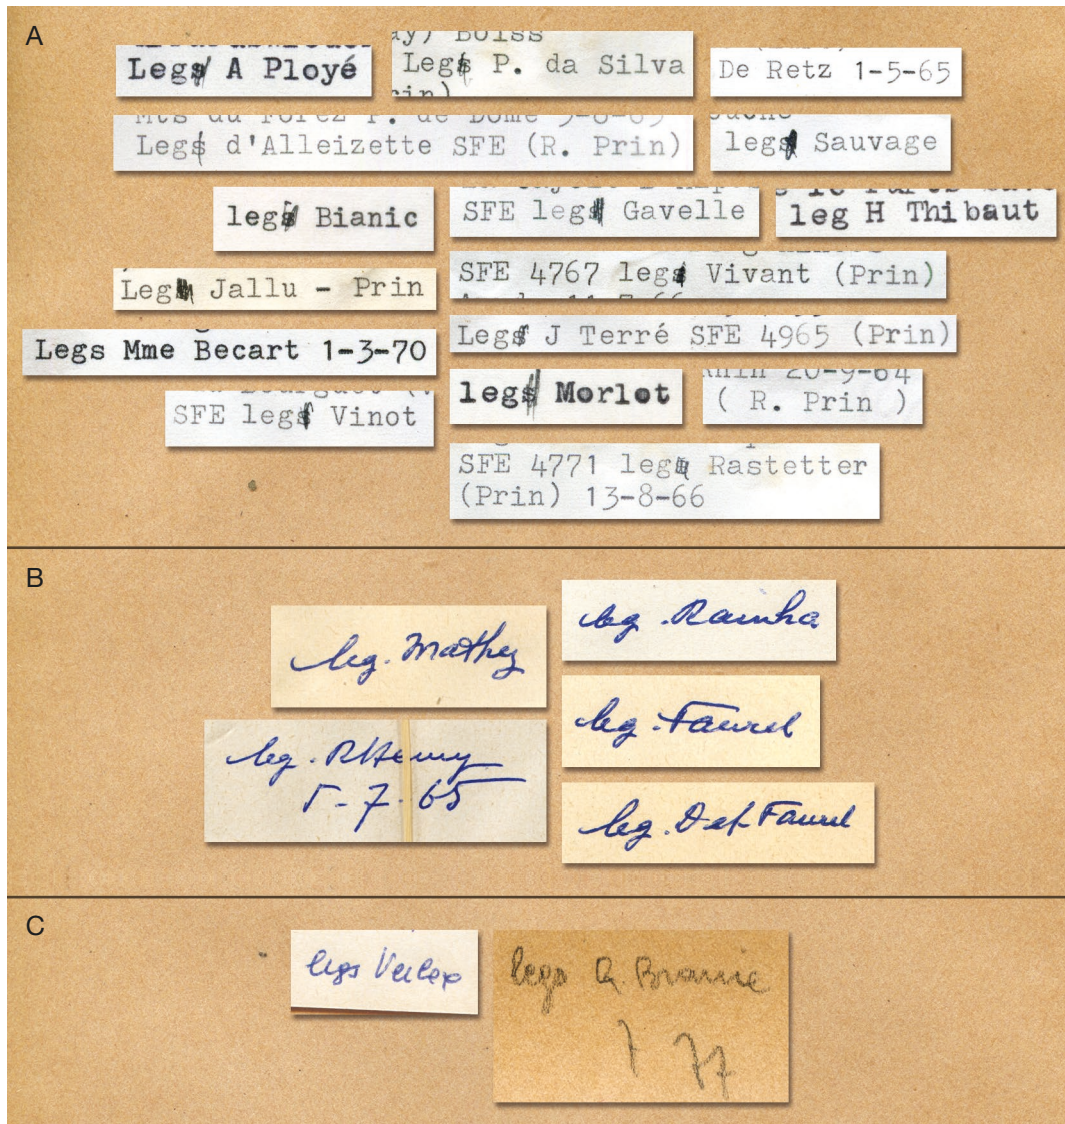 A
Legs A Ployé
ay) Boiss
Legs P. da Silva
rin)
De Retz 1-5-65
Mts du Forez P. de Dome 5-8-65
Legs d'Alleizette SFE (R. Prin)
legs Sauvage
legs Bianic
SFE legs Gavelle
leg H Thibaut
Legs Jallu - Prin
SFE 4767 legs Vivant (Prin)
Legs Mme Becart 1-3-70
Legs J Terré SFE 4965 (Prin)
SFE legs Vinot
legs Morlot
20-9-64
( R. Prin )
SFE 4771 legs Rastetter
(Prin) 13-8-66
B
leg. Mathez
leg. Rainha
leg. RHenry
5-7-65
leg. Faurel
leg. Det Faurel
C
legs
legs
7 77